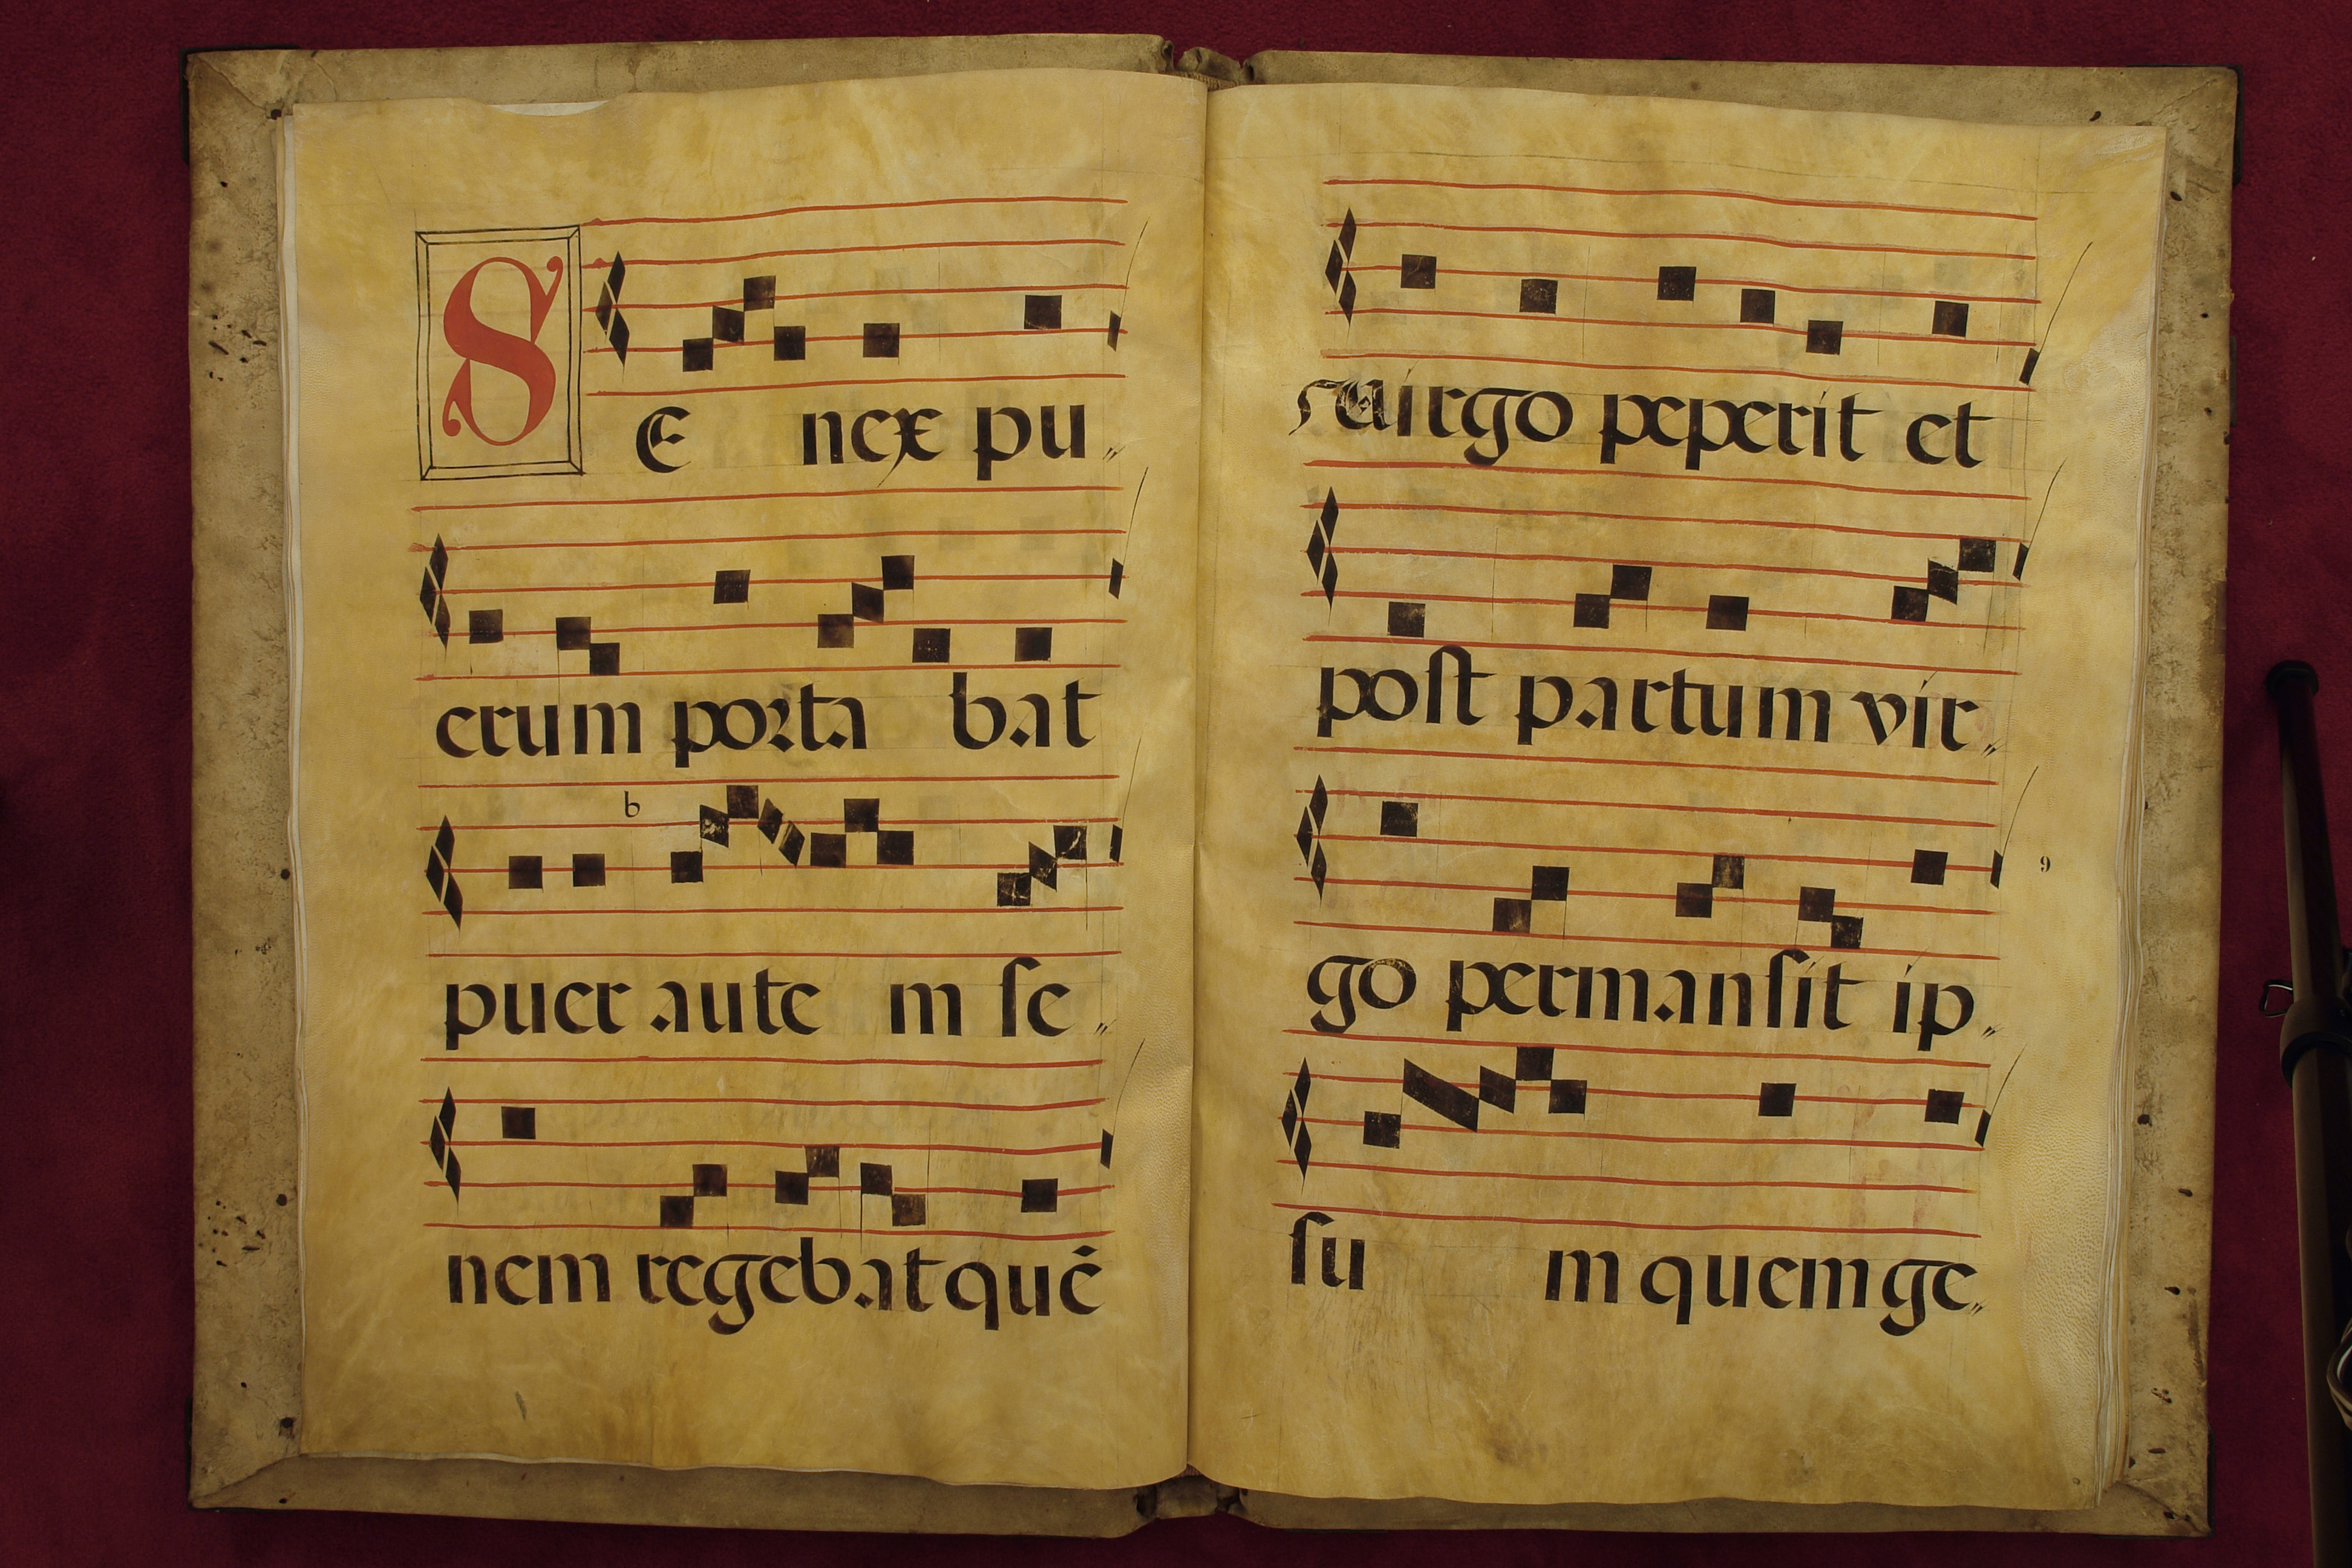 SE nex pu„
erum porta bat
b
puer aute m ſe„
nem regebat quē
virgo peperit et
poſt partum vir„
9
go permanſit ip„
ſu m quem ge„